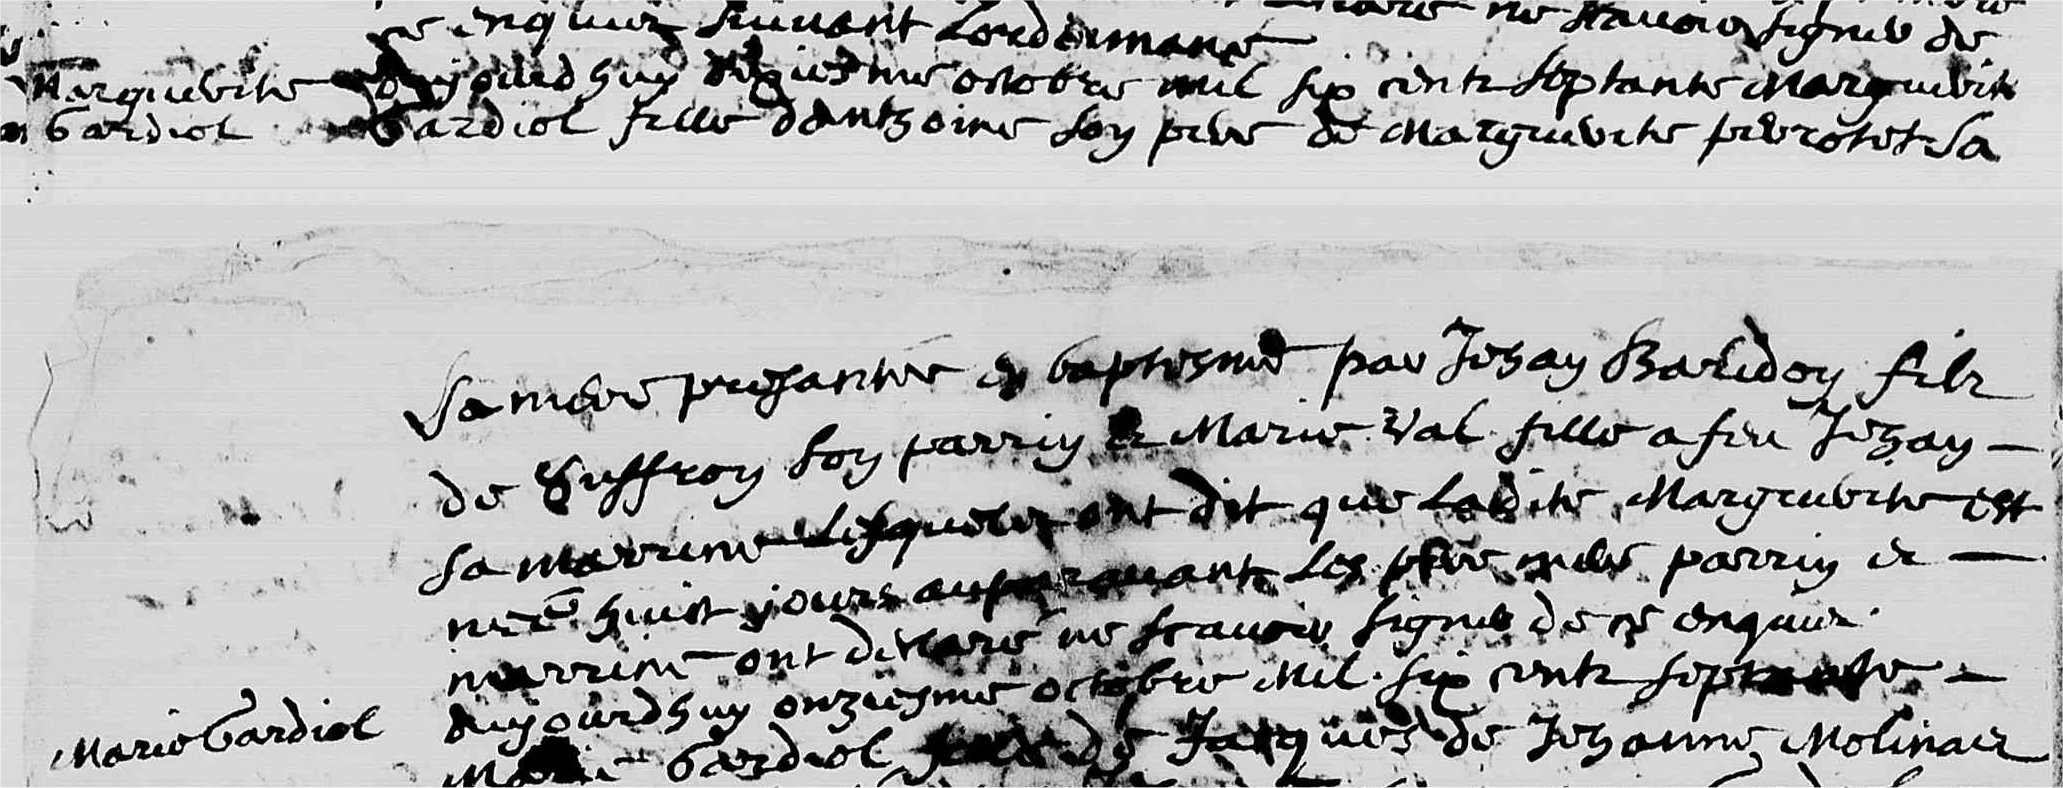 ce enquis suivant Lordonnance ne scavoir signer de
Marguerite aujourdhuy dixiesme octobre mil six cents septante Marguerite
Gardiol Gardiol fille danthoine son pere de Marguerite pierrotet Sa
Sa mere presantée en baptesme par Jehan Baridon fils
de Suffron son parrin et Marie Val fille a feu Jehan
Sa marrine Lesquels ont dit que Ladite Marguerite est
neé huict jours auparavant Les pere mere parrin et
marrine ont declaré ne scavoir signer de ce enquis
aujourdhuy onziesme octobre Mil six cents septante
Marie Gardiol Marie Gardiol fille de Jacques de Jehanne Molinas